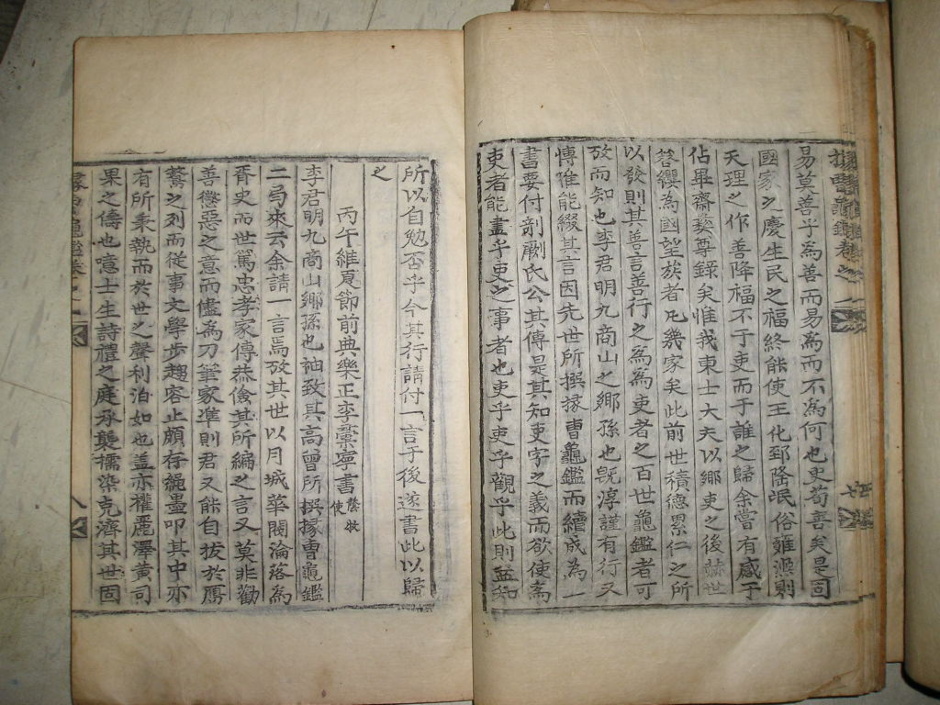 掾曹龜鑑卷之一
易莫善乎為善而易為而不為何也吏苟善矣是固
國家之慶生民之福終能使王化郅隆岷俗雍熙則
天理之作善降福不于吏而于誰之歸余嘗有感于
佔畢齋彛尊錄矣惟我東士大夫以鄉吏之後赫世
簪纓為國望族者凡幾家矣此前世積德累仁之所
以發則其善言善行之為為吏者之百世龜鑑者可
攷而知也李君明九商山之鄉孫也旣淳謹有行又
博雅能綴其言因先世所撰掾曹龜鑑而續成為一
書要付剞劂氏公其傳是其知吏字之義而欲使為
吏者能盡乎吏之事者也吏乎吏乎觀乎此則盍知
所以自勉否乎今其行請付一言于後遂書此以歸
之
丙午維夏節前典樂正李稟寧書
李君明九商山鄉孫也袖致其高曾所撰掾曹龜鑑
二弓來云余請一言焉攷其世以月城華閥淪落為
胥史而世篤忠孝家傳恭儉其所編之言又莫非勸
善懲惡之意而儘為刀筆家準則君又能自拔於鴈
鶩之列而從事文學步趨容止頗存繩墨叩其中亦
有所秉執而於世之聲利泊如也盖亦權麗澤黃司
果之儔也噫士生詩禮之庭承襲擩染克濟其世固
掾曹龜鑑卷之一
八